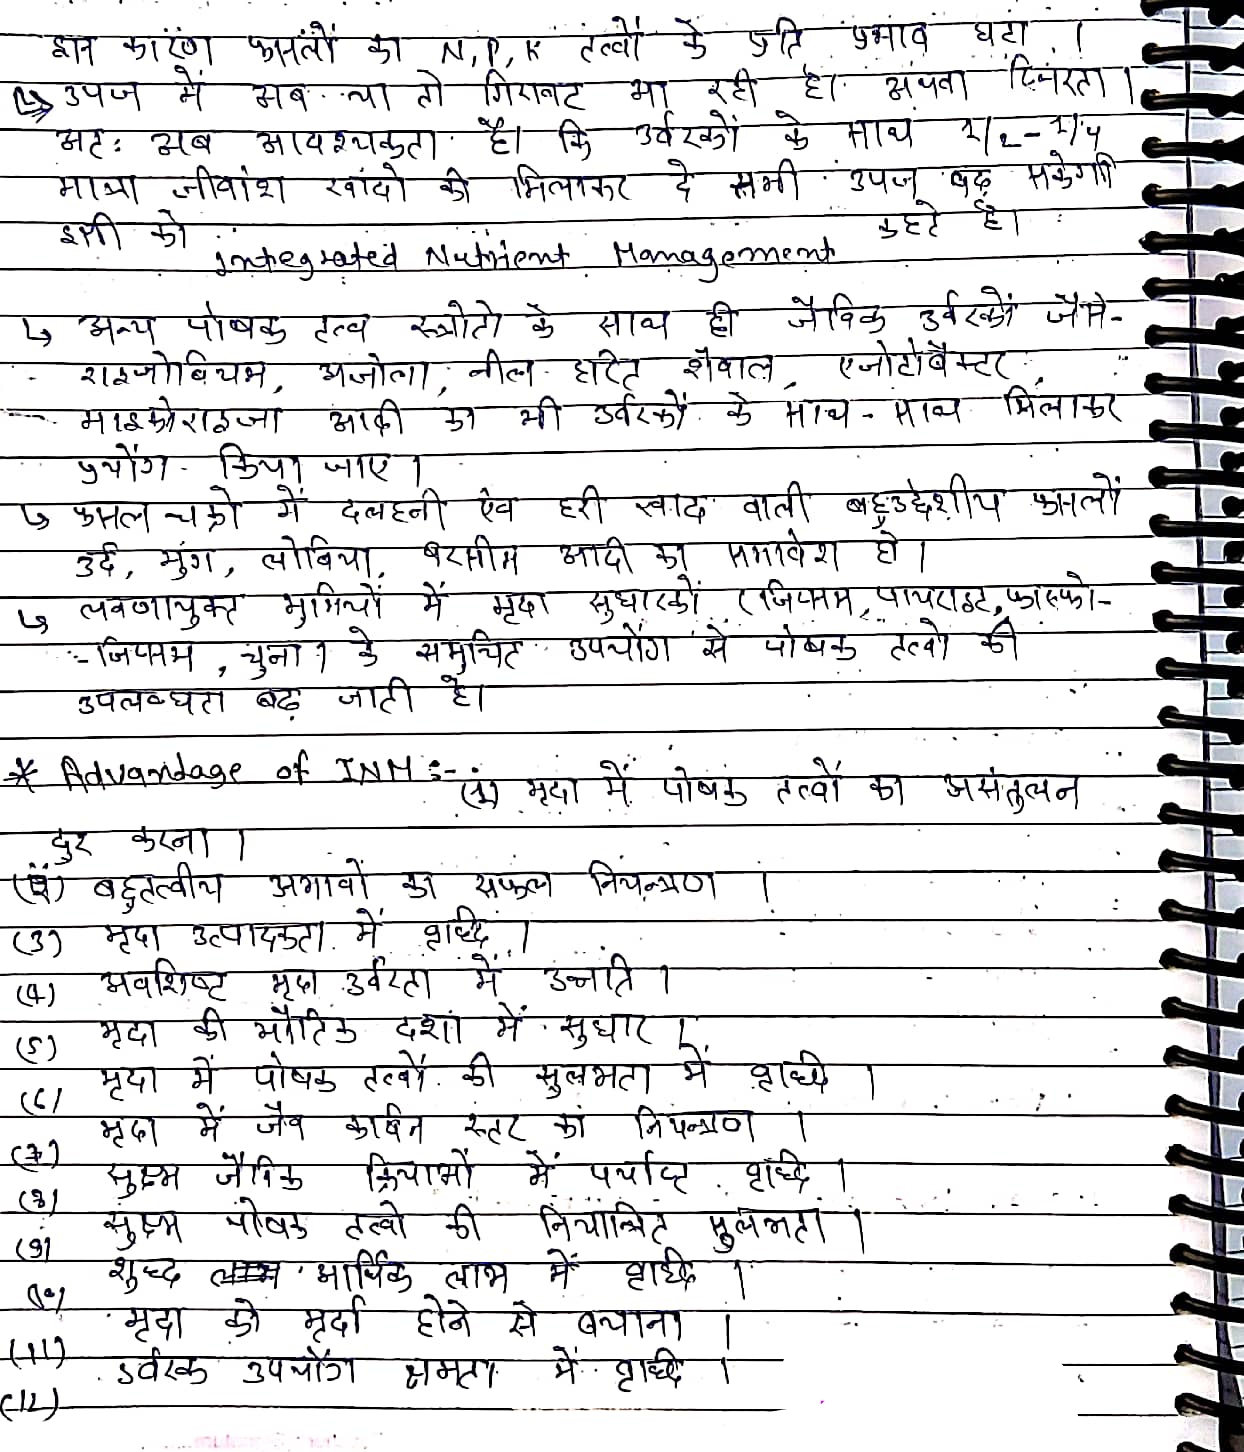 इन कारण फसलों का N, P, K तत्वों के प्रति प्रभाव घटा ।
↳ उपज में अब या तो गिरावट आ रही है। अथवा स्थिरता ।
अतः अब आवश्यकता है। कि उर्वरकों के साथ 1/2 - 1/4
मात्रा जीवांश खादो की मिलाकर दे तभी उपज बढ़ सकेगी
इसी को integrated Nutrient Management कहते है।
↳ अन्य पोषक तत्व स्त्रोतो के साथ ही जैविक उर्वरकों जैसे-
राइजोबियम, अजोला, नील हरित शैवाल, एजोटोबैक्टर,
माइकोराइजा आदी का भी उर्वरकों के साथ - साथ मिलाकर
प्रयोग किया जाए ।
↳ फसल चक्रो में दलहनी एंव हरी खाद वाली बहुउद्देशीय फसलों
उर्द, मुंग, लोबिया, बरसीम आदी का समावेश हो ।
↳ लवणायुक्त भुमियों में मृदा सुधारकों (जिप्सम, पायराइट, फास्फो-
-जिप्सम, चुना) के समुचित उपयोग से पोषक तत्वो की
उपलब्धता बढ़ जाती है।
* Advandage of INM :- (1) मृदा में पोषक तत्वों का असंतुलन
दुर करना ।
(2) बहुतत्वीय अभावों का सफल नियन्त्रण ।
(3) मृदा उत्पादकता में वृद्धि ।
(4) अवशिष्ट मृदा उर्वरता में उन्नति ।
(5) मृदा की भौतिक दशा में सुधार ।
(6) मृदा में पोषक तत्वों की सुलभता में वृद्धि ।
(7) मृदा में जैव कार्बन स्तर का नियन्त्रण ।
(8) सुक्ष्म जैविक क्रियाओं में पर्याप्त वृद्धि ।
(9) सुक्ष्म पोषक तत्वो की नियन्त्रित सुलभता ।
(10) शुद्ध आर्थिक लाभ में वृद्धि ।
(11) मृदा को मृर्दा होने से बचाना ।
(12) उर्वरक उपयोग क्षमता में वृद्धि ।